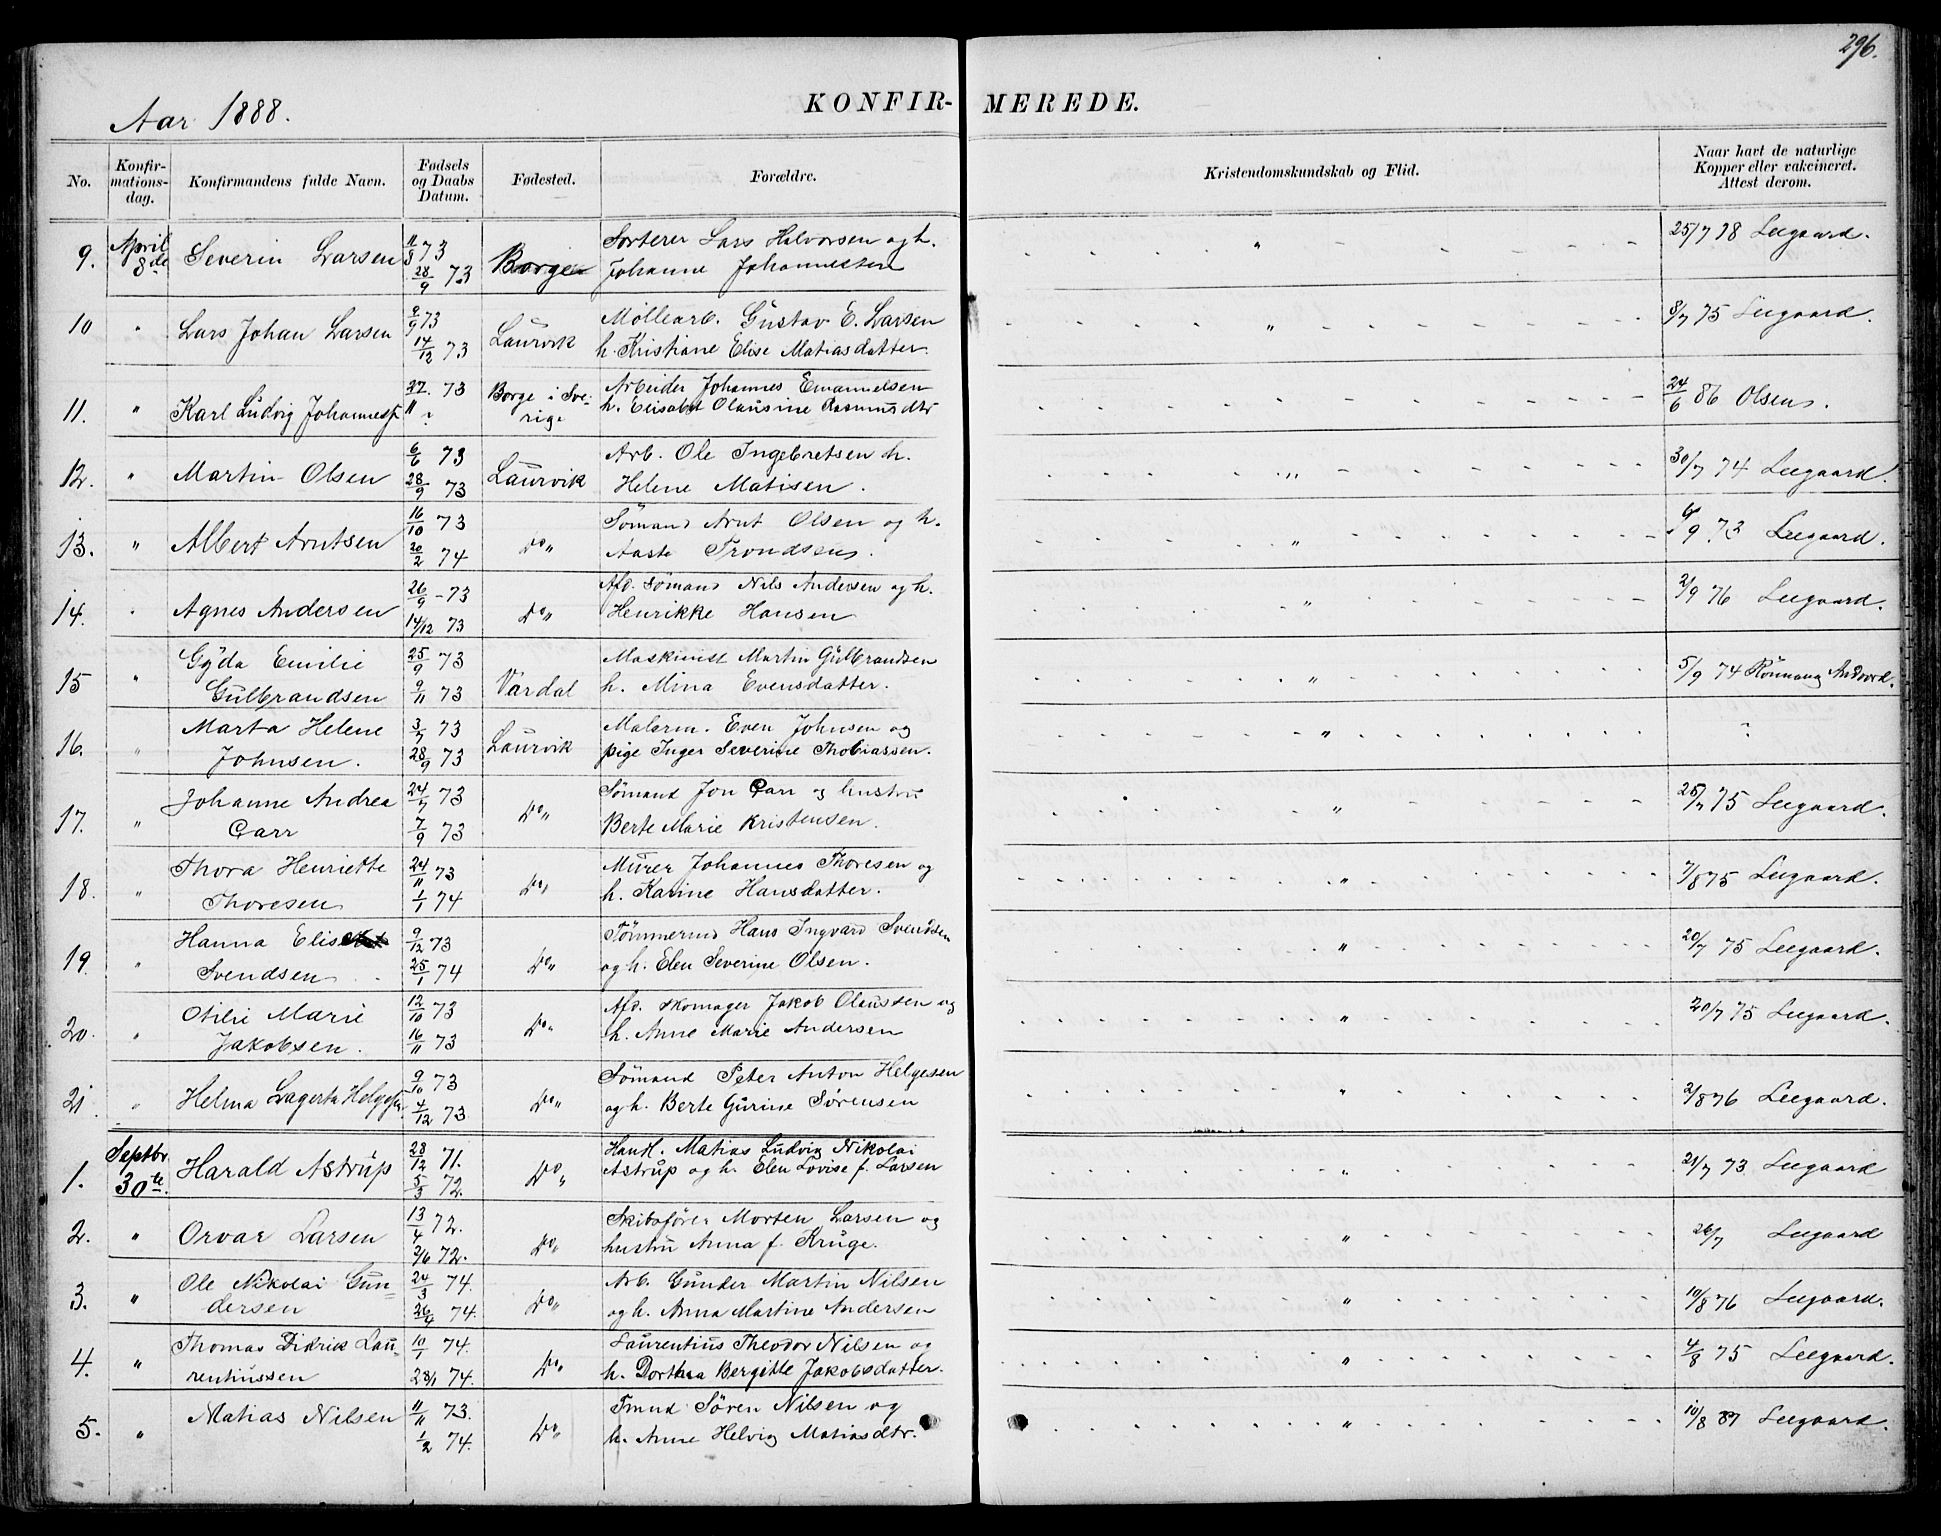 296.
Aar 1888.
KONFIR-MEREDE.
No. Konfir-mations-dag. Konfirmandens fulde Navn. Fødsels og Daabs Datum. Fødested. Forældre. Kristendomskundskab og Flid. Naar havt de naturlige Kopper eller vakcineret. Attest derom.
9. April 8de Severin Larsen 11/8 73 Borge Sorterer Lars Halvorsen og h. " 25/7 78 Leegaard.
28/9 73 Johanne Johannessen
10 " Lars Johan Larsen 9/9 73 Laurvik Møllearb. Gustav E. Larsen " 8/7 75 Leegaard.
14/12 73 h. Kristiane Elise Matiasdatter.
11. " Karl Ludvig Johanness. 27/11 73 Borge i Sve- Arbeider Johannes Emanuelsen 24/6 86 Olsen.
? rige h. Elisabet Olausine Rasmusdtr
12. " Martin Olsen 6/6 73 Laurvik Arb. Ole Ingebretsen h. " 30/7 74 Leegaard.
28/9 73 Helene Matisen.
13. " Albert Arntsen 16/10 73 Do " Sømand Arnt Olsen og h. " 9 73 Leegaard.
20/2 74 Aaste Trondsen.
14. " Agnes Andersen 26/9 - 73 Do " Afd. Sømand Nils Andersen og h. " 2/9 76 Leegaard.
14/12 73 Henrikke Hansen
15 " Gyda Emilie 25/9 73 Vardal Maskinist Martin Gulbrandsen " 5/9 74 Rønnaug Andvord.
Gulbrandsen 9/11 73 h. Mina Evensdatter.
16. " Marta Helene 3/7 73 Laurvik Malersv. Even Johnsen og " "
Johnsen. 28/9 73 pige Inger Severine Thobiassen.
17. " Johanne Andrea 24/7 73 Do " Sømand Jon Carr og hustru " 25/7 75 Leegaard.
Carr 7/9 73 Berte Marie Kristensen.
18. " Thora Henriette 24/11 73 Do " Murer Johannes Thoresen og " 7/8 75 Leegaard.
Thoresen 1/1 74 h. Karine Hansdatter.
19. " Hanna Elise 9/12 73 Do " Tømmermd Hans Ingvard Svendsen " 20/7 75 Leegaard.
Svendsen 25/1 74 og h. Elen Severine Olsen.
20. " Otilie Marie 12/10 73 Do " Afd. Skomager Jakob Olaussen og " 20/7 75 Leegaard.
Jakobsen. 16/11 73 h. Anne Marie Andersen
21. " Helma Lagerta Helgesen 9/10 73 Do " Sømand Peter Anton Helgesen " 2/8 76 Leegaard.
4/12 73 og h. Berte Gurine Sørensen
1. Septbr 30te. Harald Astrup 28/12 71. Do " Handl. Matias Ludvig Nikolai " 21/7 73 Leegaard
5/3 72. Astrup og h. Elen Lovise f. Larsen
2. " Orvar Larsen 13/4 72. Do " Skibsfører Morten Larsen og " 26/7 Leegaard
2/6 72. hustru Anna f. Kruge.
3. " Ole Nikolai Gun- 24/3 74. Do " Arb. Gunder Martin Nilsen " 10/8 76 Leegaard.
dersen 26/4 74. og h. Anna Martine Andersen
4. " Thomas Didrik Lau- 10/1 74. Do " Laurentius Theodor Nilsen og " 4/8 75 Leegaard.
rentiussen 23/1 74. h. Dorthea Bergitte Jakobsdatter.
5. " Matias Nilsen 11/11 73. Do " Tmmd Søren Nilsen og " 10/8 87 Leegaard.
1/2 74. h. Anne Helvig Matiasdtr.